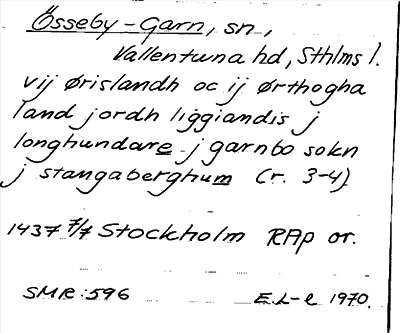 Össeby-Garn, sn,
Vallentuna hd, Sthlms l.
vij ørislandh oc ij ørthogha
land jordh liggiandis j
longhundare j garnbo sokn
j stangaberghum (r. 3-4)
1437 7/7 Stockholm RAp or.
SMR:596 E.L-l 1970.